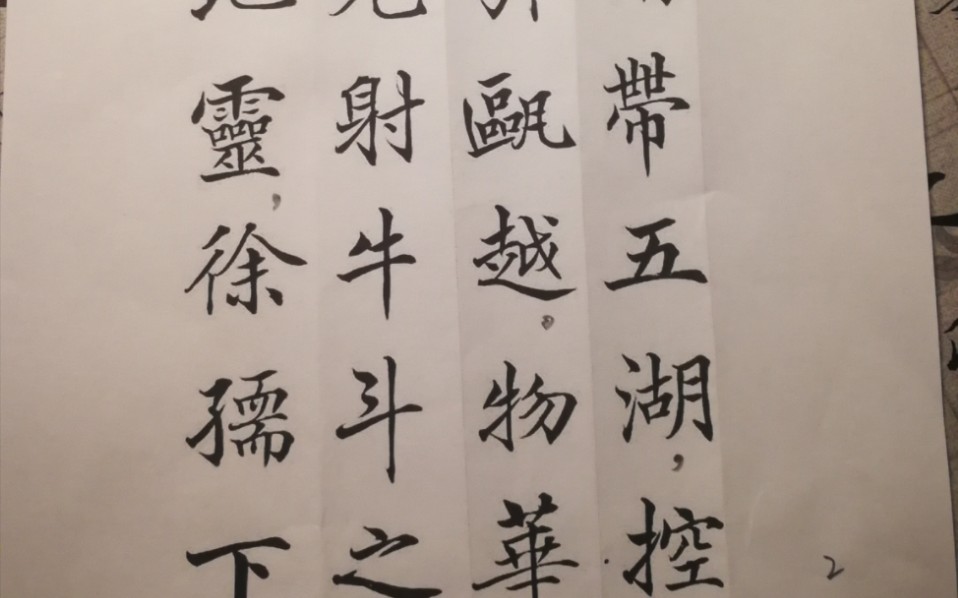 帶五湖，控
甌越。物華
射牛斗之
靈，徐孺下
2